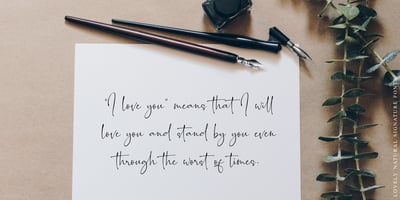 "I love you" means that I will
love you and stand by you even
through the worst of times.
LOVELY NATURAL SIGNATURE FONT